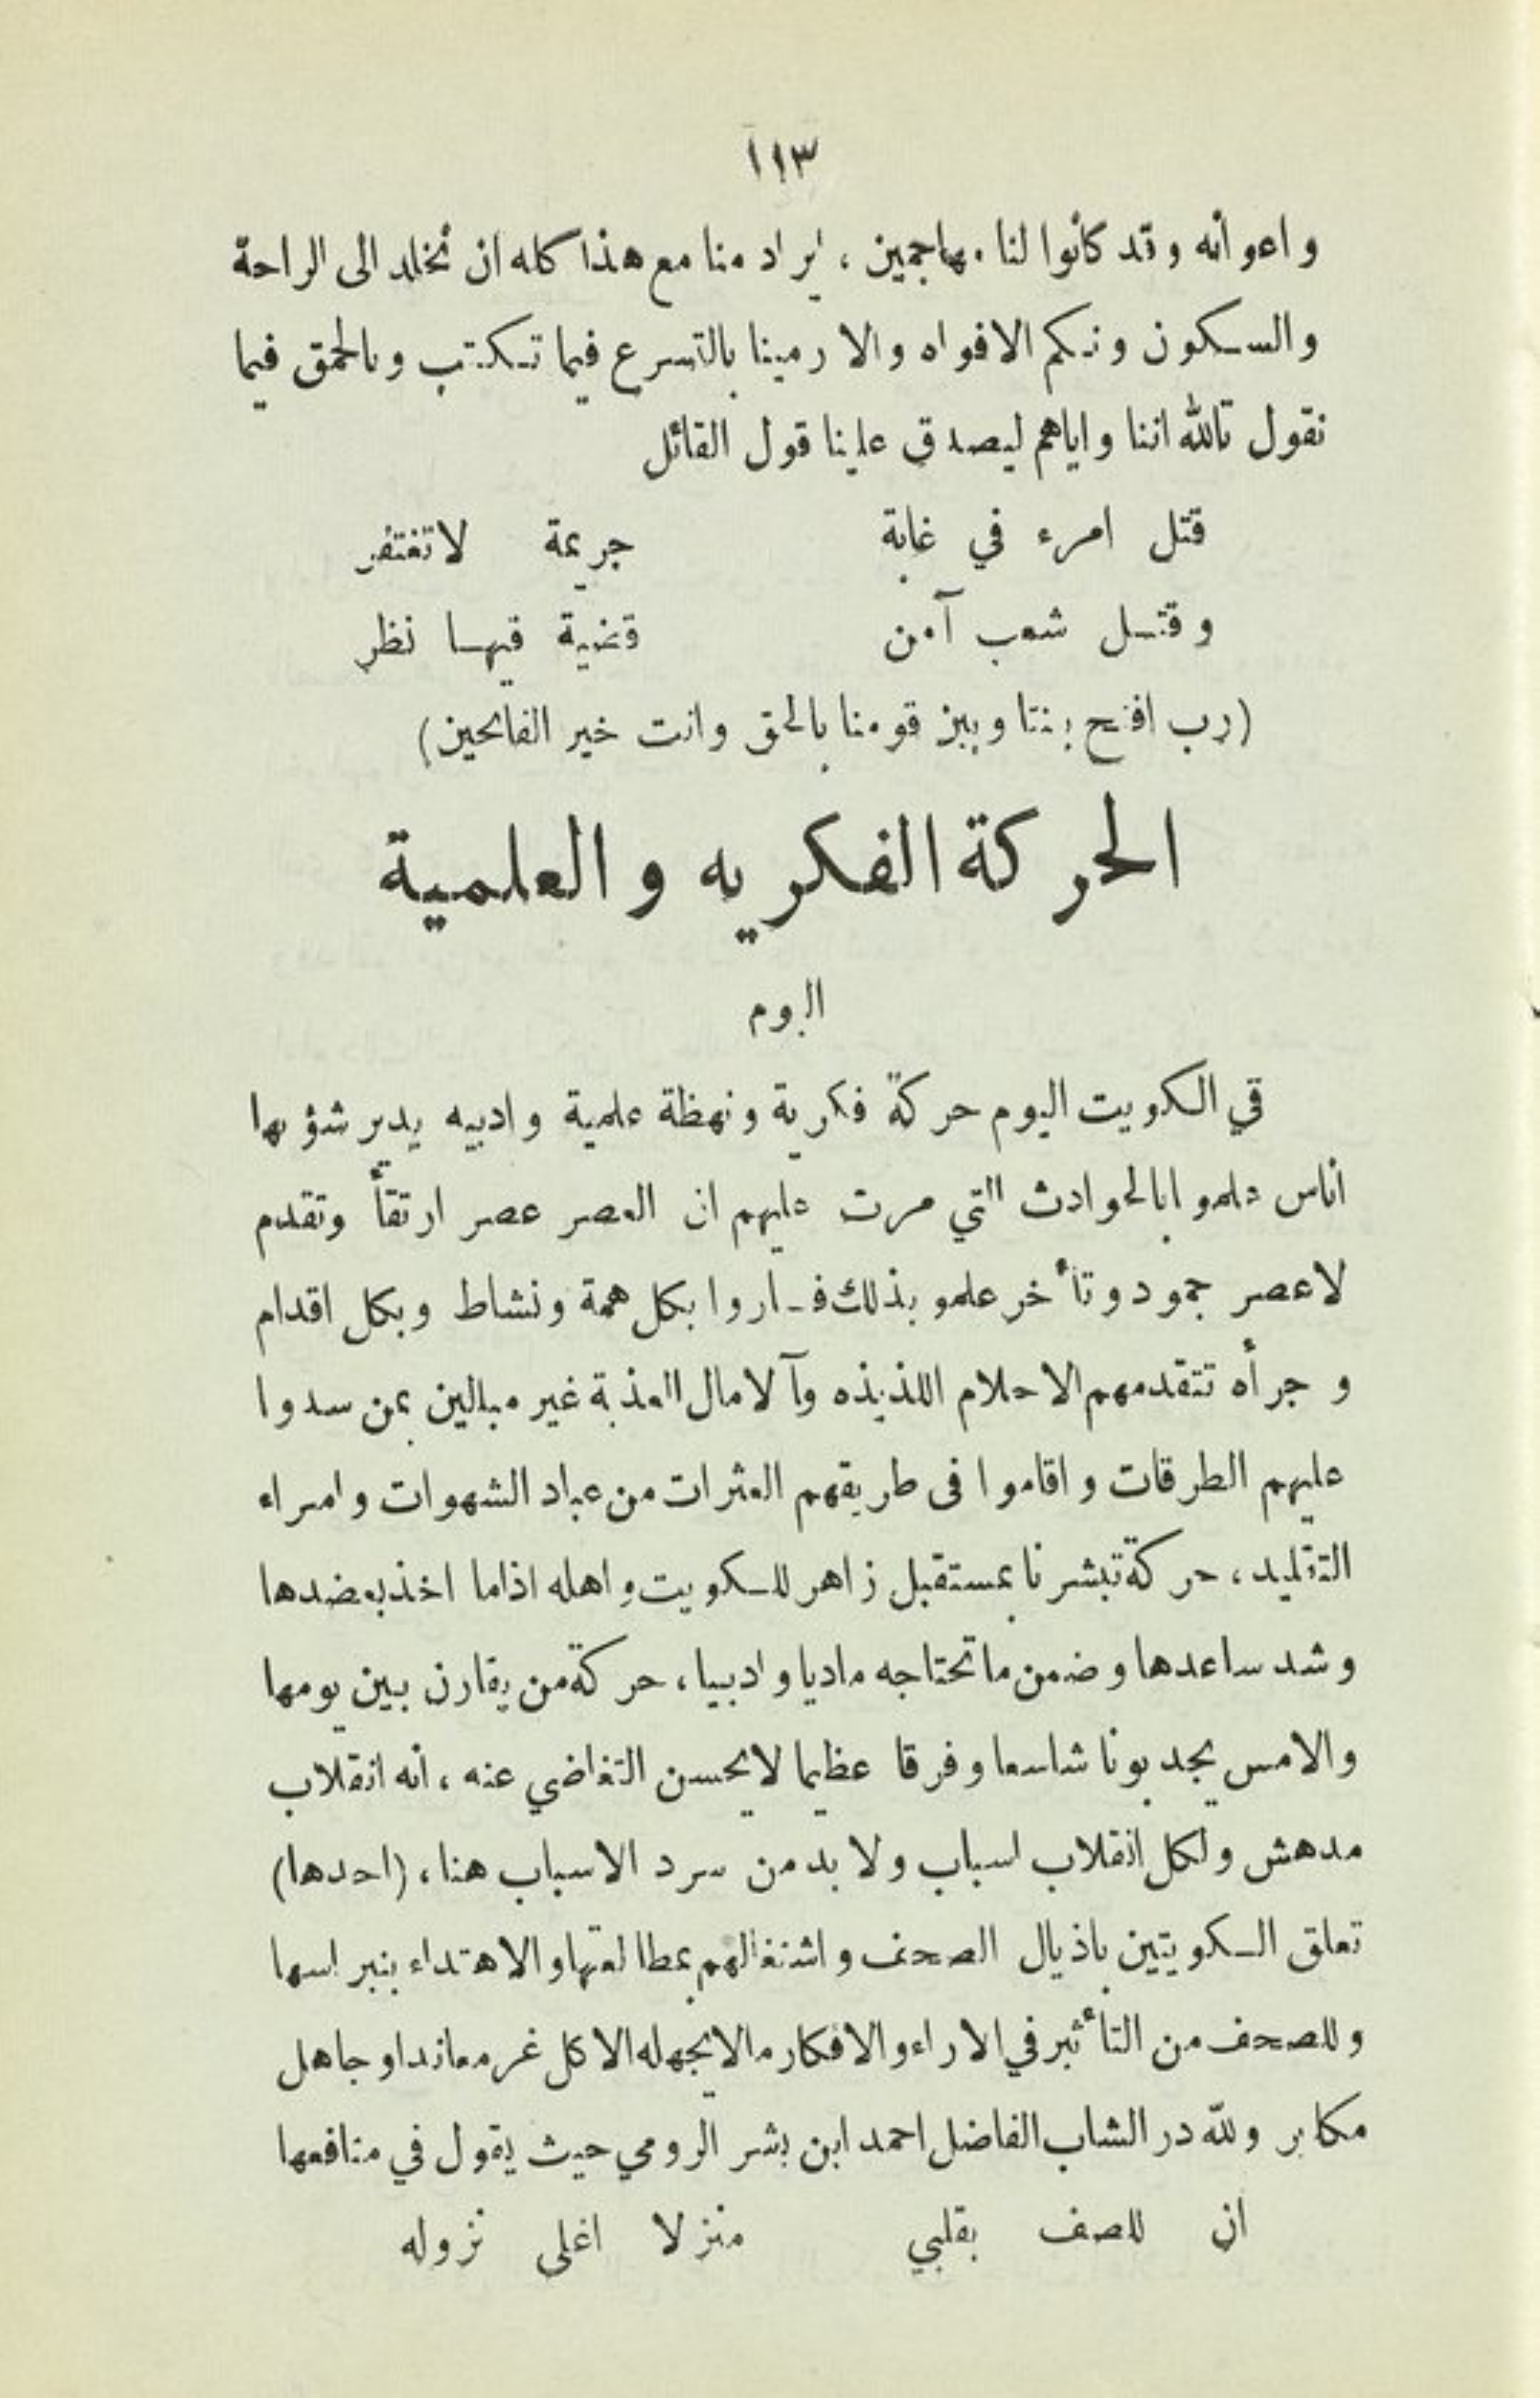 ١١٣
واعوانه وقد كانوا لنا مهاجمين ، ايراد منا مع هذا كله ان نخلد الى الراحة
والسكون ونكم الافواه والا رمينا بالتسرع فيما تكتب وبالحمق فيما
نقول تالله اننا واياهم ليصدق علينا قول القائل
قتل امرء في غابة جريمة لاتغتفر
وقتل شعب آمن قضية فيها نظر
(رب افتح بننا وبين قومنا بالحق وانت خير الفاتحين)
الحركة الفكريه والعلمية
اليوم
في الكويت اليوم حركة فكرية ونهظة علمية وادبيه يدير شؤنها
اناس علمو ابالحوادث التي مرت عليهم ان العصر عصر ارتقأ وتقدم
لاعصر جمود وتأخر علمو بذلك فساروا بكل همة ونشاط وبكل اقدام
وجرأه تتقدمهم الاحلام اللذيذه وآلامال العذبة غير مبالين بمن سدوا
عليهم الطرقات واقاموا فى طريقهم العثرات من عباد الشهوات وامراء
التقليد ، حركة تبشرنا بمستقبل زاهر للكويت واهله اذاما اخذ بعضدها
وشد ساعدها وضمن ماتحتاجه ماديا وادبيا ، حركة من يقارن بين يومها
والامس يجد بونا شاسعا وفرقا عظيما لايحسن التغاضي عنه ، انه انقلاب
مدهش ولكل انقلاب اسباب ولا بد من سرد الاسباب هنا ، (احدها)
تعلق الكويتيين باذيال الصحف واشتغالهم بمطالعتها والاهتداء بنبراسها
وللصحف من التأثير في الاراء والافكار مالايجهله الاكل غر معاند او جاهل
مكابر ولله در الشاب الفاضل احمد ابن بشر الرومي حيث يقول في منافعها
ان للصف بقلبي منزلا اغلى نزوله